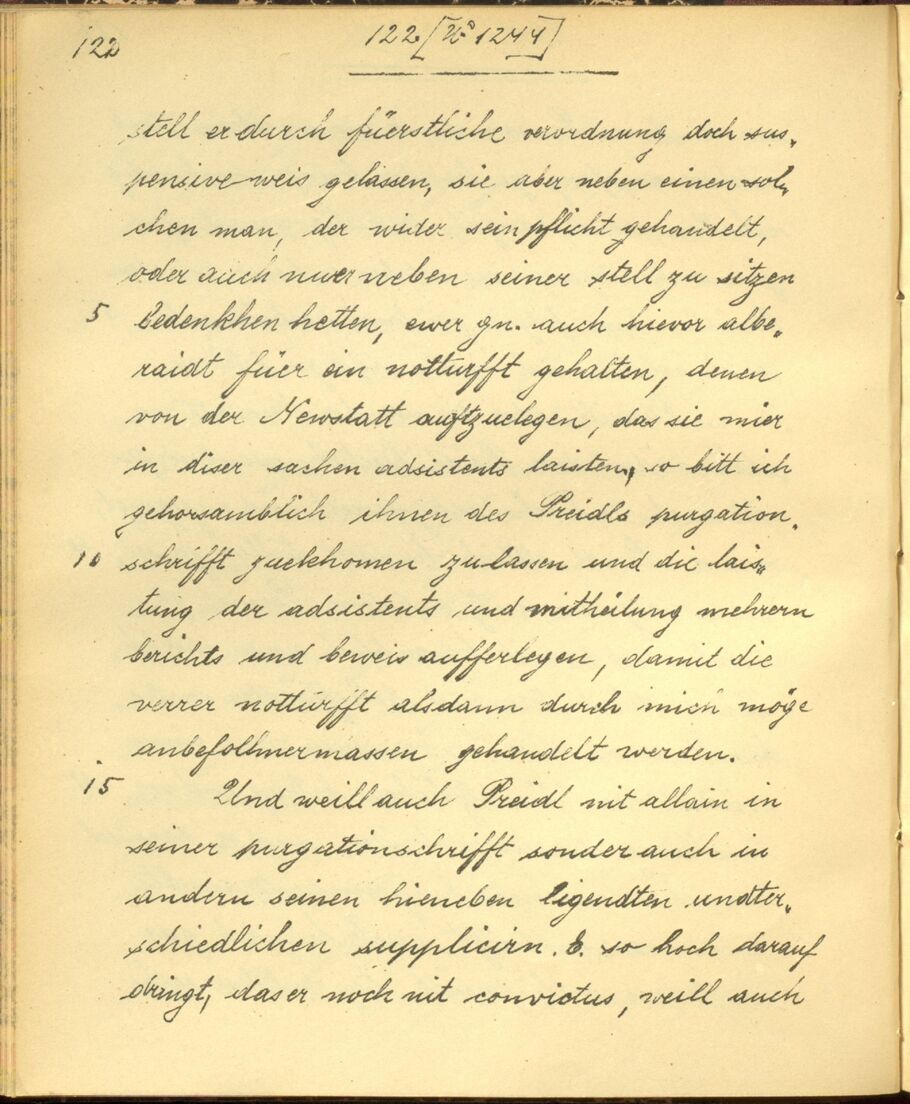 122
122 [No 1244]
stell er durch füerstliche verordnung doch sus„
pensive weis gelassen, sie aber neben einen sol„
chen man, der wider sein pflicht gehandelt,
oder auch nuer neben seiner stell zu sitzen
5 bedenkhen hetten, ewer gn. auch hievor albe„
raidt füer ein notturfft gehalten, denen
von der Newstatt auftzuelegen, das sie mier
in diser sachen adsistents laisten, so bitt ich
gehorsamblich ihnen des Preidls purgation„
10 schrifft zuekhomen zu lassen und die lais„
tung der adsistents und mittheilung mehrern
berichts und beweis aufferlegen, damit die
verrer notturfft alsdann durch mich möge
anbefolhnermassen gehandelt werden.
15 Und weill auch Preidl nit allain in
seiner purgationschrifft sonder auch in
andern seinen hieneben ligendten undter„
schiedlichen supplicirn. b. so hoch darauf
dringt, das er noch nit convictus, weill auch